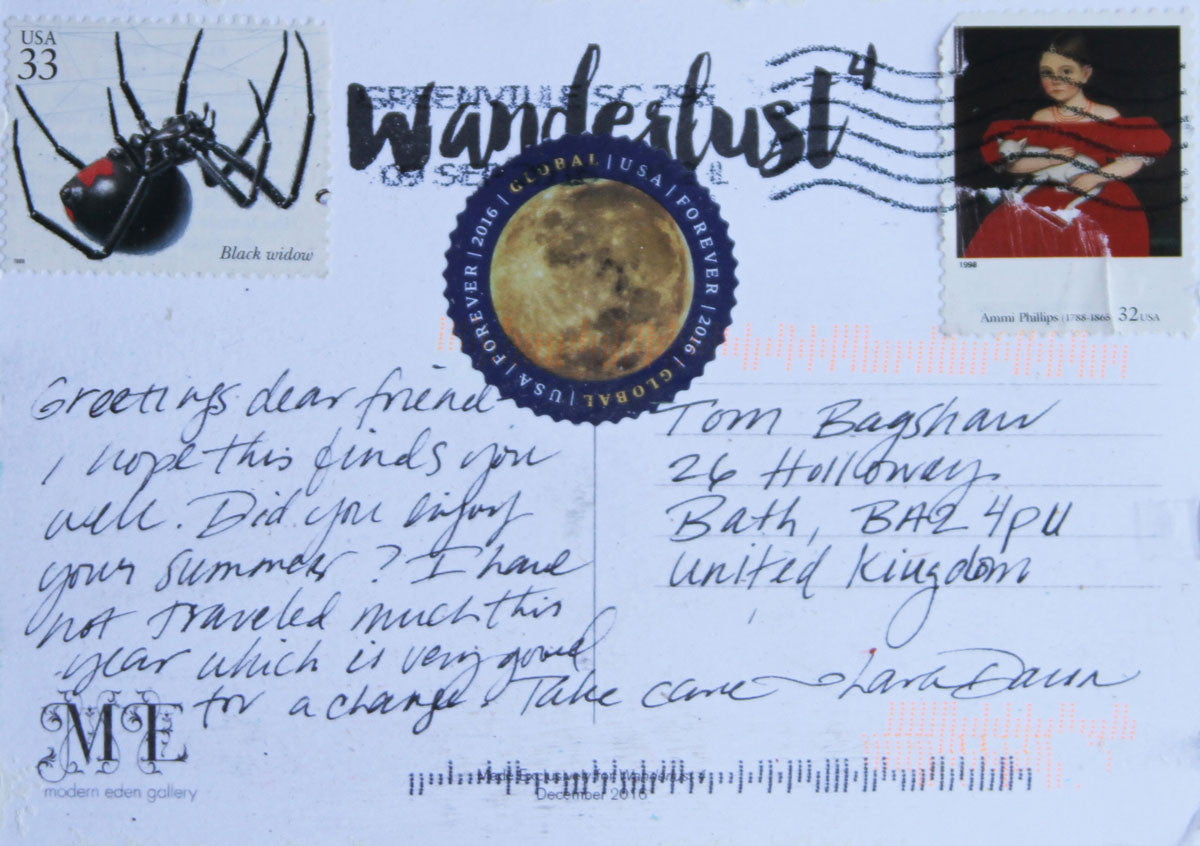 USA
33
Black widow
1998
GREENVILLE SC 296
Wanderlust 4
GLOBAL | USA | FOREVER | 2016 | GLOBAL | USA | FOREVER | 2016 |
1998
Ammi Phillips (1788-1865 32USA
Greetings dear friend
I hope this finds you
well. Did you enjoy
your summer? I have
not traveled much this
year which is very good
for a change. Take care ~ Lara Dann
Tom Bagshaw
26 Holloway
Bath, BA2 4PU
United Kingdom
ME
modern eden gallery
Made Exclusively for Wanderlust 4
December 2016